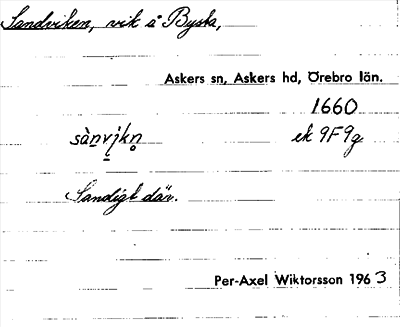 Sandviken, vik å Byska,
Askers sn, Askers hd, Örebro län.
1660
sànvikn̥ ek 9F9g
Sandigt där.
Per-Axel Wiktorsson 1963